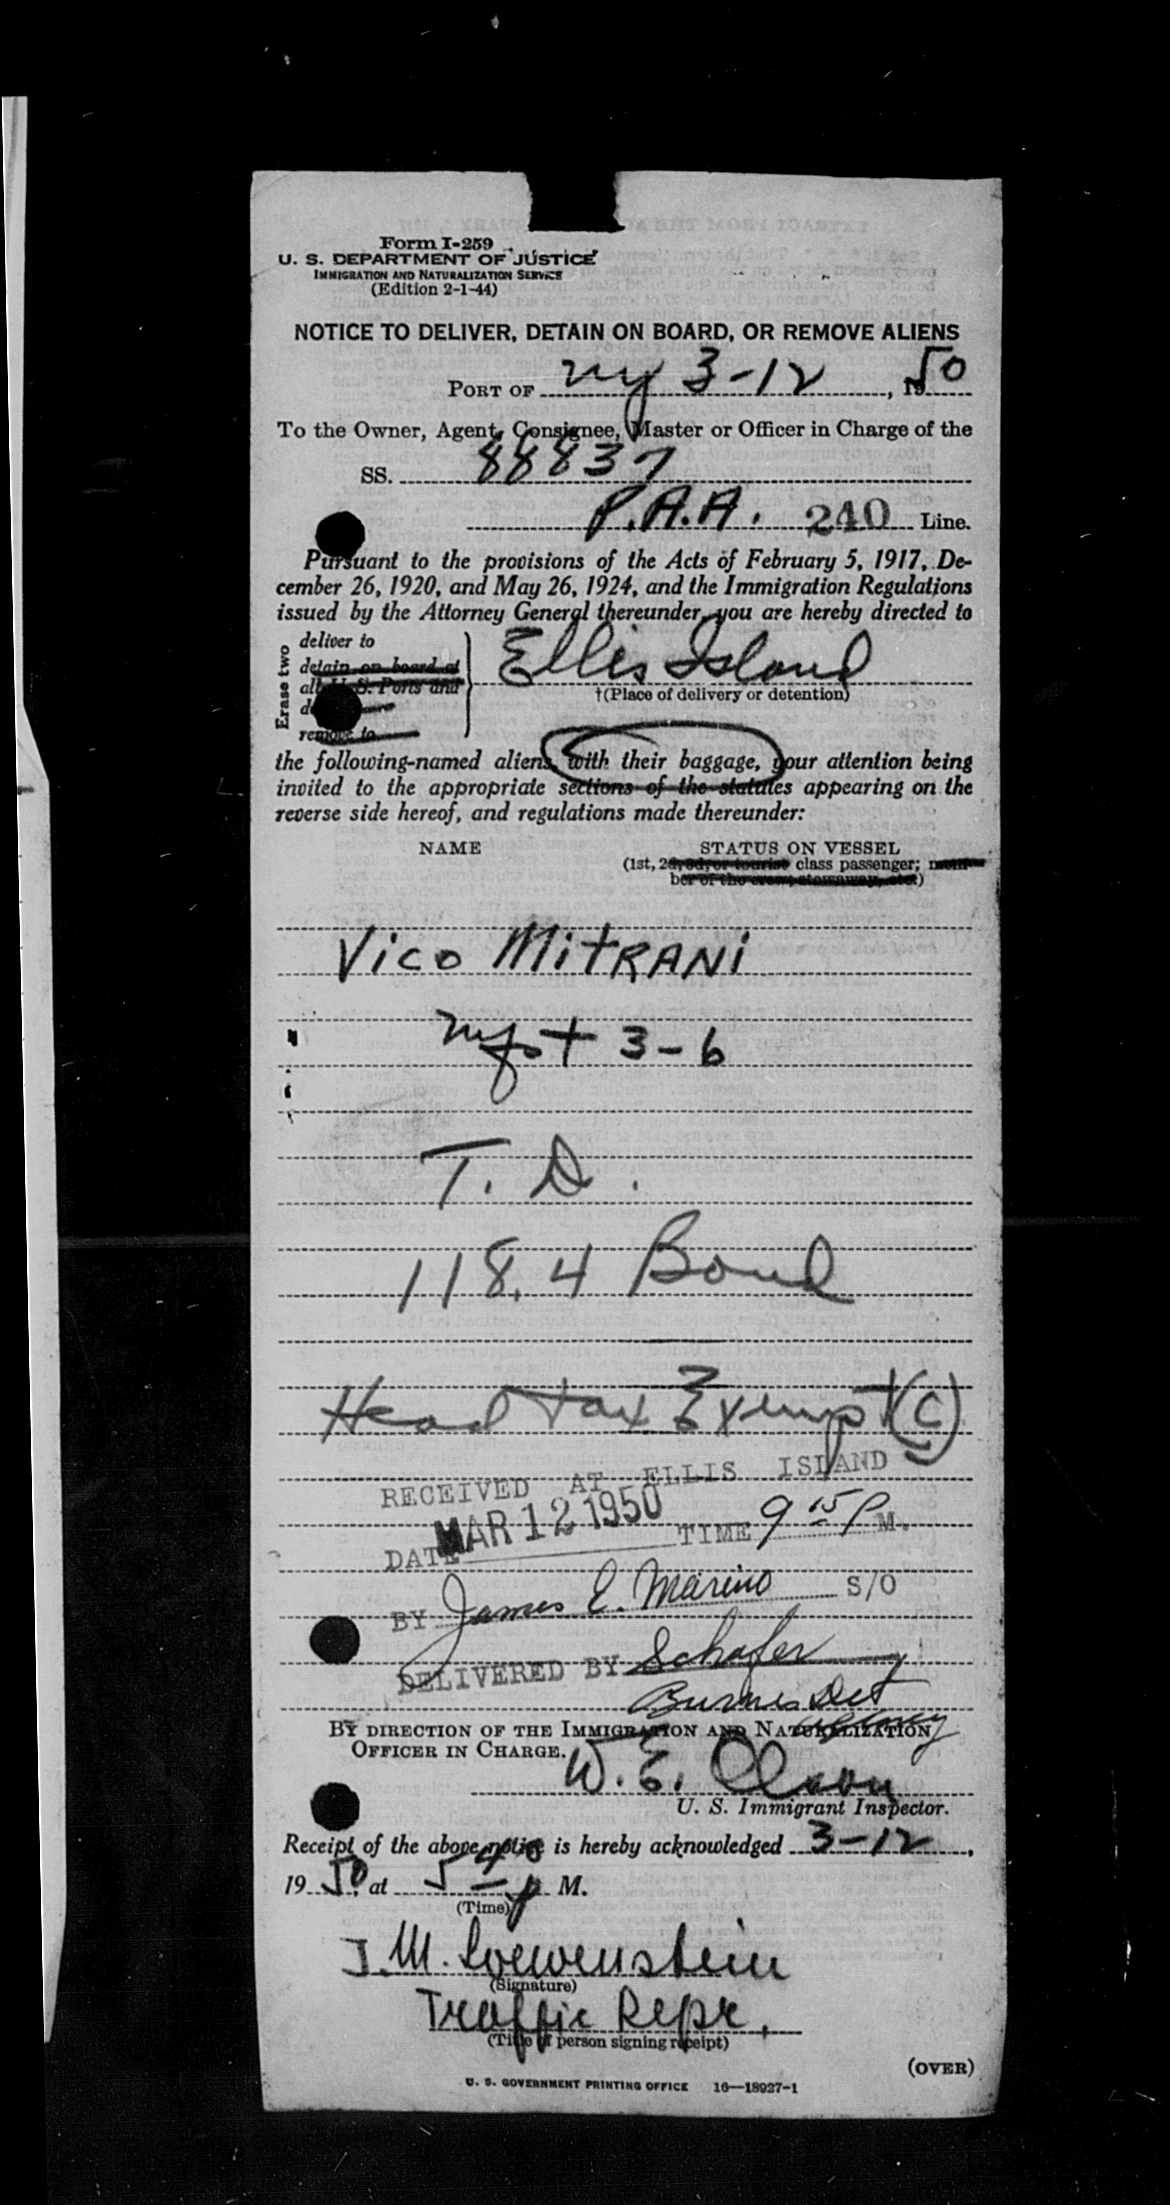 Form I-259
U. S. DEPARTMENT OF JUSTICE
IMMIGRATION AND NATURALIZATION SERVICE
(Edition 2-1-44)
NOTICE TO DELIVER, DETAIN ON BOARD, OR REMOVE ALIENS
PORT OF ny 3-12, 1950
To the Owner, Agent, Consignee, Master or Officer in Charge of the
SS. 88837
P.A.A. 240 Line.
Pursuant to the provisions of the Acts of February 5, 1917, De-
cember 26, 1920, and May 26, 1924, and the Immigration Regulations
issued by the Attorney General thereunder, you are hereby directed to
Erase two
deliver to
detain on board at
all U. S. Ports and
remove to
Ellis Island
†(Place of delivery or detention)
the following-named aliens, with their baggage, your attention being
invited to the appropriate sections of the statutes appearing on the
reverse side hereof, and regulations made thereunder:
NAME STATUS ON VESSEL
(1st, 2d, 3d, or tourist class passenger; mem-
ber of the crew, stowaway, etc.)
Vico MitRANi
3-6
T. D.
118.4 Bond
Head tax Exempt (C)
RECEIVED AT ELLIS ISLAND
DATE MAR 12 1950 TIME 9 15 P M.
BY James E. Marino S/O
DELIVERED BY Schafer
Burnes Det
agency
BY DIRECTION OF THE IMMIGRATION AND NATURALIZATION
OFFICER IN CHARGE.
W. E. Olson
U. S. Immigrant Inspector.
Receipt of the above notice is hereby acknowledged 3-12,
1950, at 5 40 p M.
(Time)
J. M. Loewenstein
(Signature)
Traffic Repr.
(Title of person signing receipt)
(OVER)
U. S. GOVERNMENT PRINTING OFFICE 16—18927-1